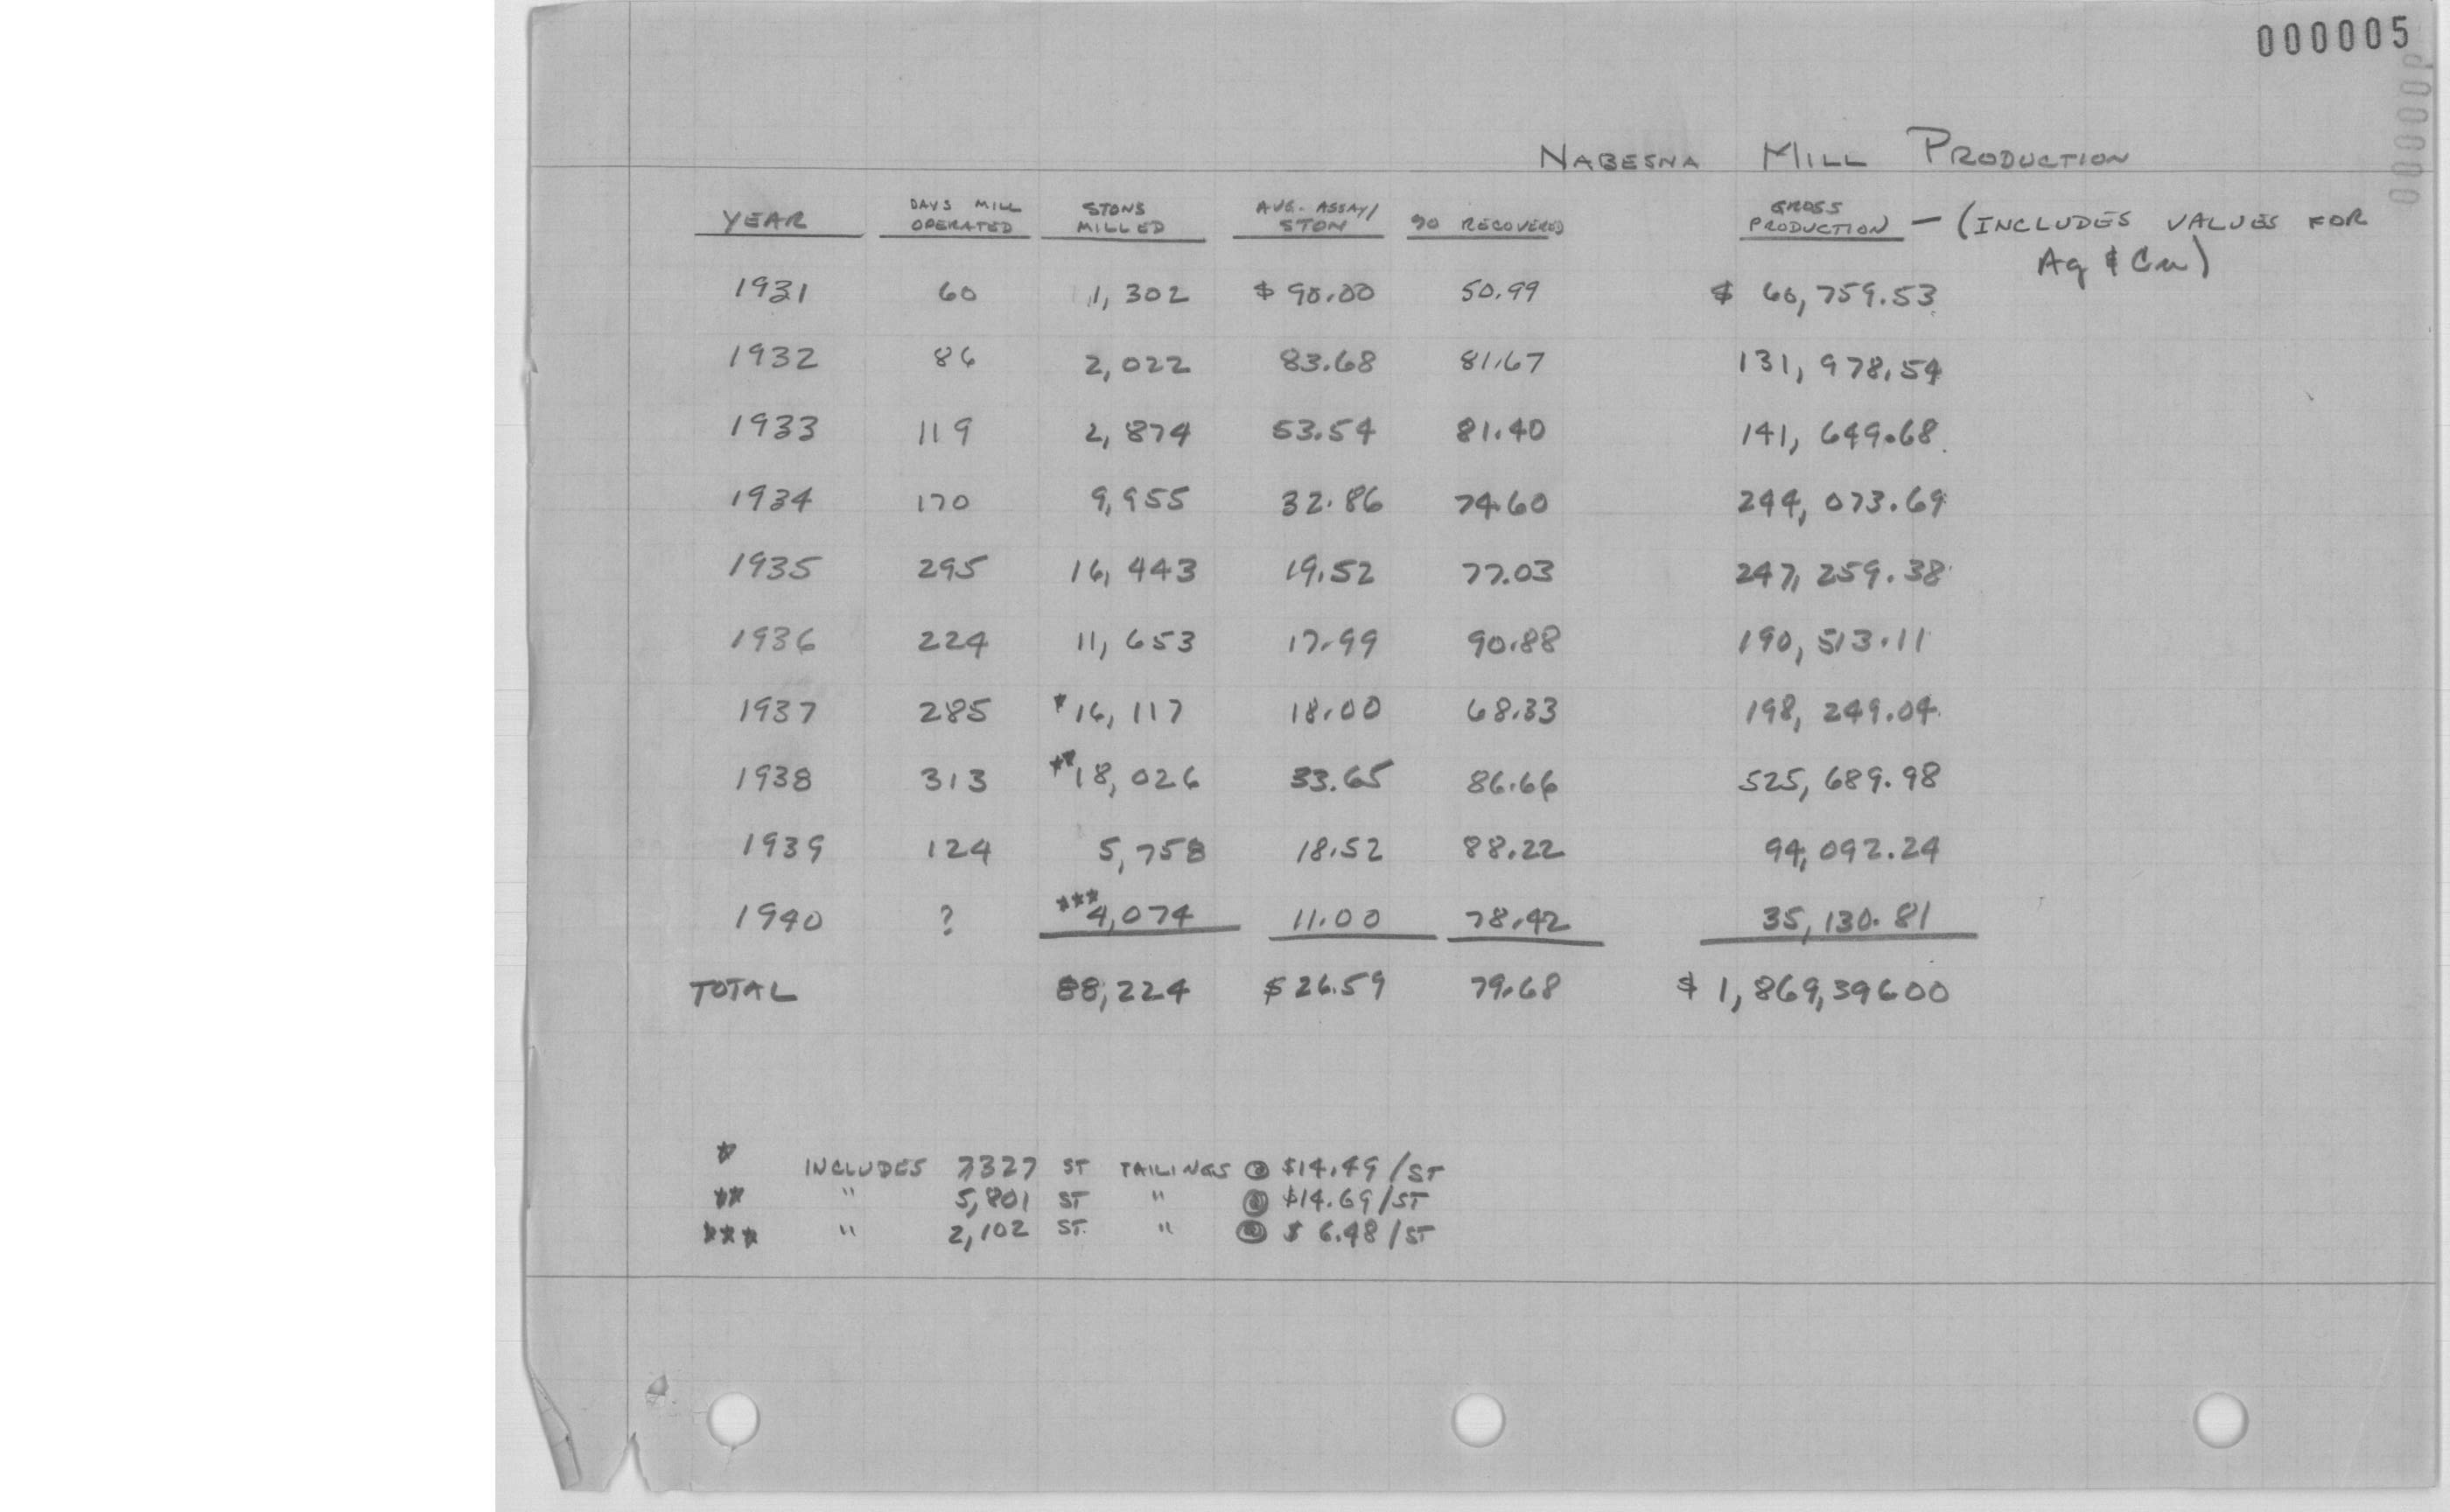 000005
NABESNA MILL PRODUCTION
YEAR DAYS MILL OPERATED STONS MILLED AVG. ASSAY/STON % RECOVERED GROSS PRODUCTION - (INCLUDES VALUES FOR Ag & Cu)
1931 60 1,302 $90.00 50.99 $ 60,759.53
1932 86 2,022 83.68 81.67 131,978.54
1933 119 2,874 53.54 81.40 141,649.68
1934 170 9,955 32.86 74.60 244,073.69
1935 295 16,443 19.52 77.03 247,259.38
1936 224 11,653 17.99 90.88 190,513.11
1937 285 *16,117 18.00 68.33 198,249.04
1938 313 **18,026 33.65 86.66 525,689.98
1939 124 5,758 18.52 88.22 94,092.24
1940 ? ***4,074 11.00 78.42 35,130.81
TOTAL 88,224 $26.59 79.68 $1,869,396.00
* INCLUDES 7327 ST TAILINGS @ $14.49/ST
** " 5,801 ST " @ $14.69/ST
*** " 2,102 ST. " @ $6.48/ST